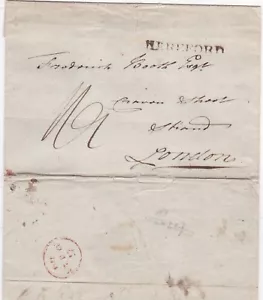 HEREFORD
Frederick Booth Esqr
Craven Street
Strand
London